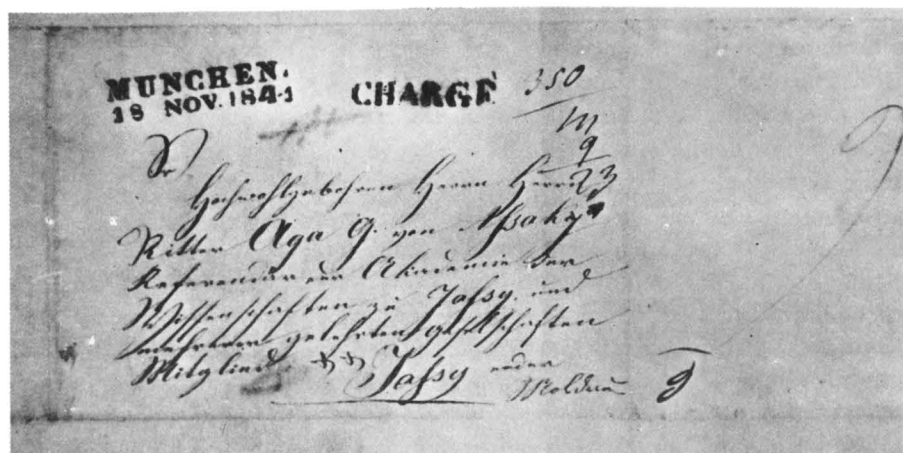 MUNCHEN.
18 NOV. 1841
CHARGÉ
350
Sr
Hochwohlgebohren Herrn Herrn
Ritter Aga G. von Assaky
Referendär der Akademie der
Wissenschaften zu Jassy und
mehrerer gelehrten Gesellschaften
Mitglied
Jassy
Moldau